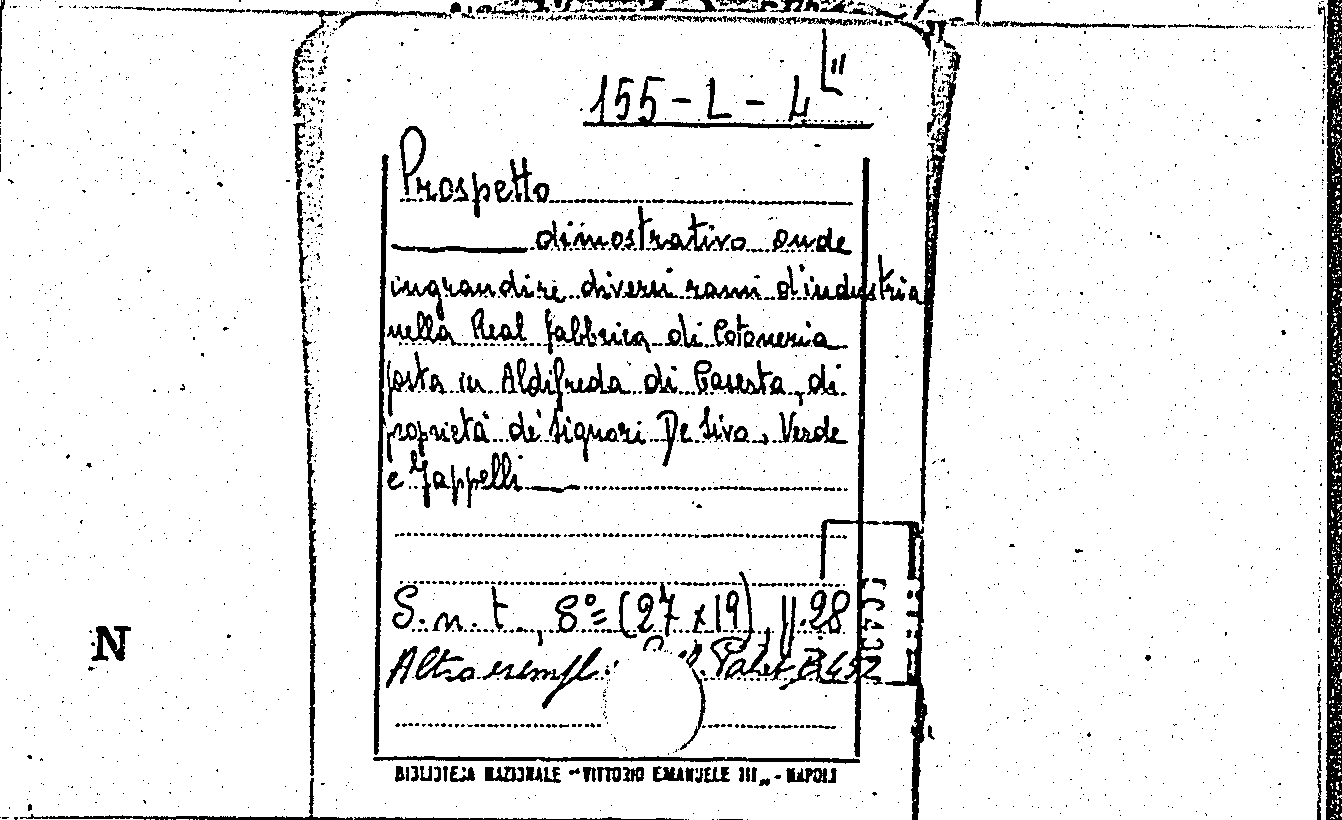 155 - L - 4
Prospetto
dimostrativo onde
ingrandire diversi rami d'industria
nella Real fabbrica di Cotoneria
posta in Aldifreda di Caserta, di
proprietà de' Signori De Siva, Verde
e Jappelli
S. n. t., 8º (27 x 19), pp. 28
Altro esempl. B 452
N
BIBLIOTECA NAZIONALE "VITTORIO EMANUELE III„ - NAPOLI